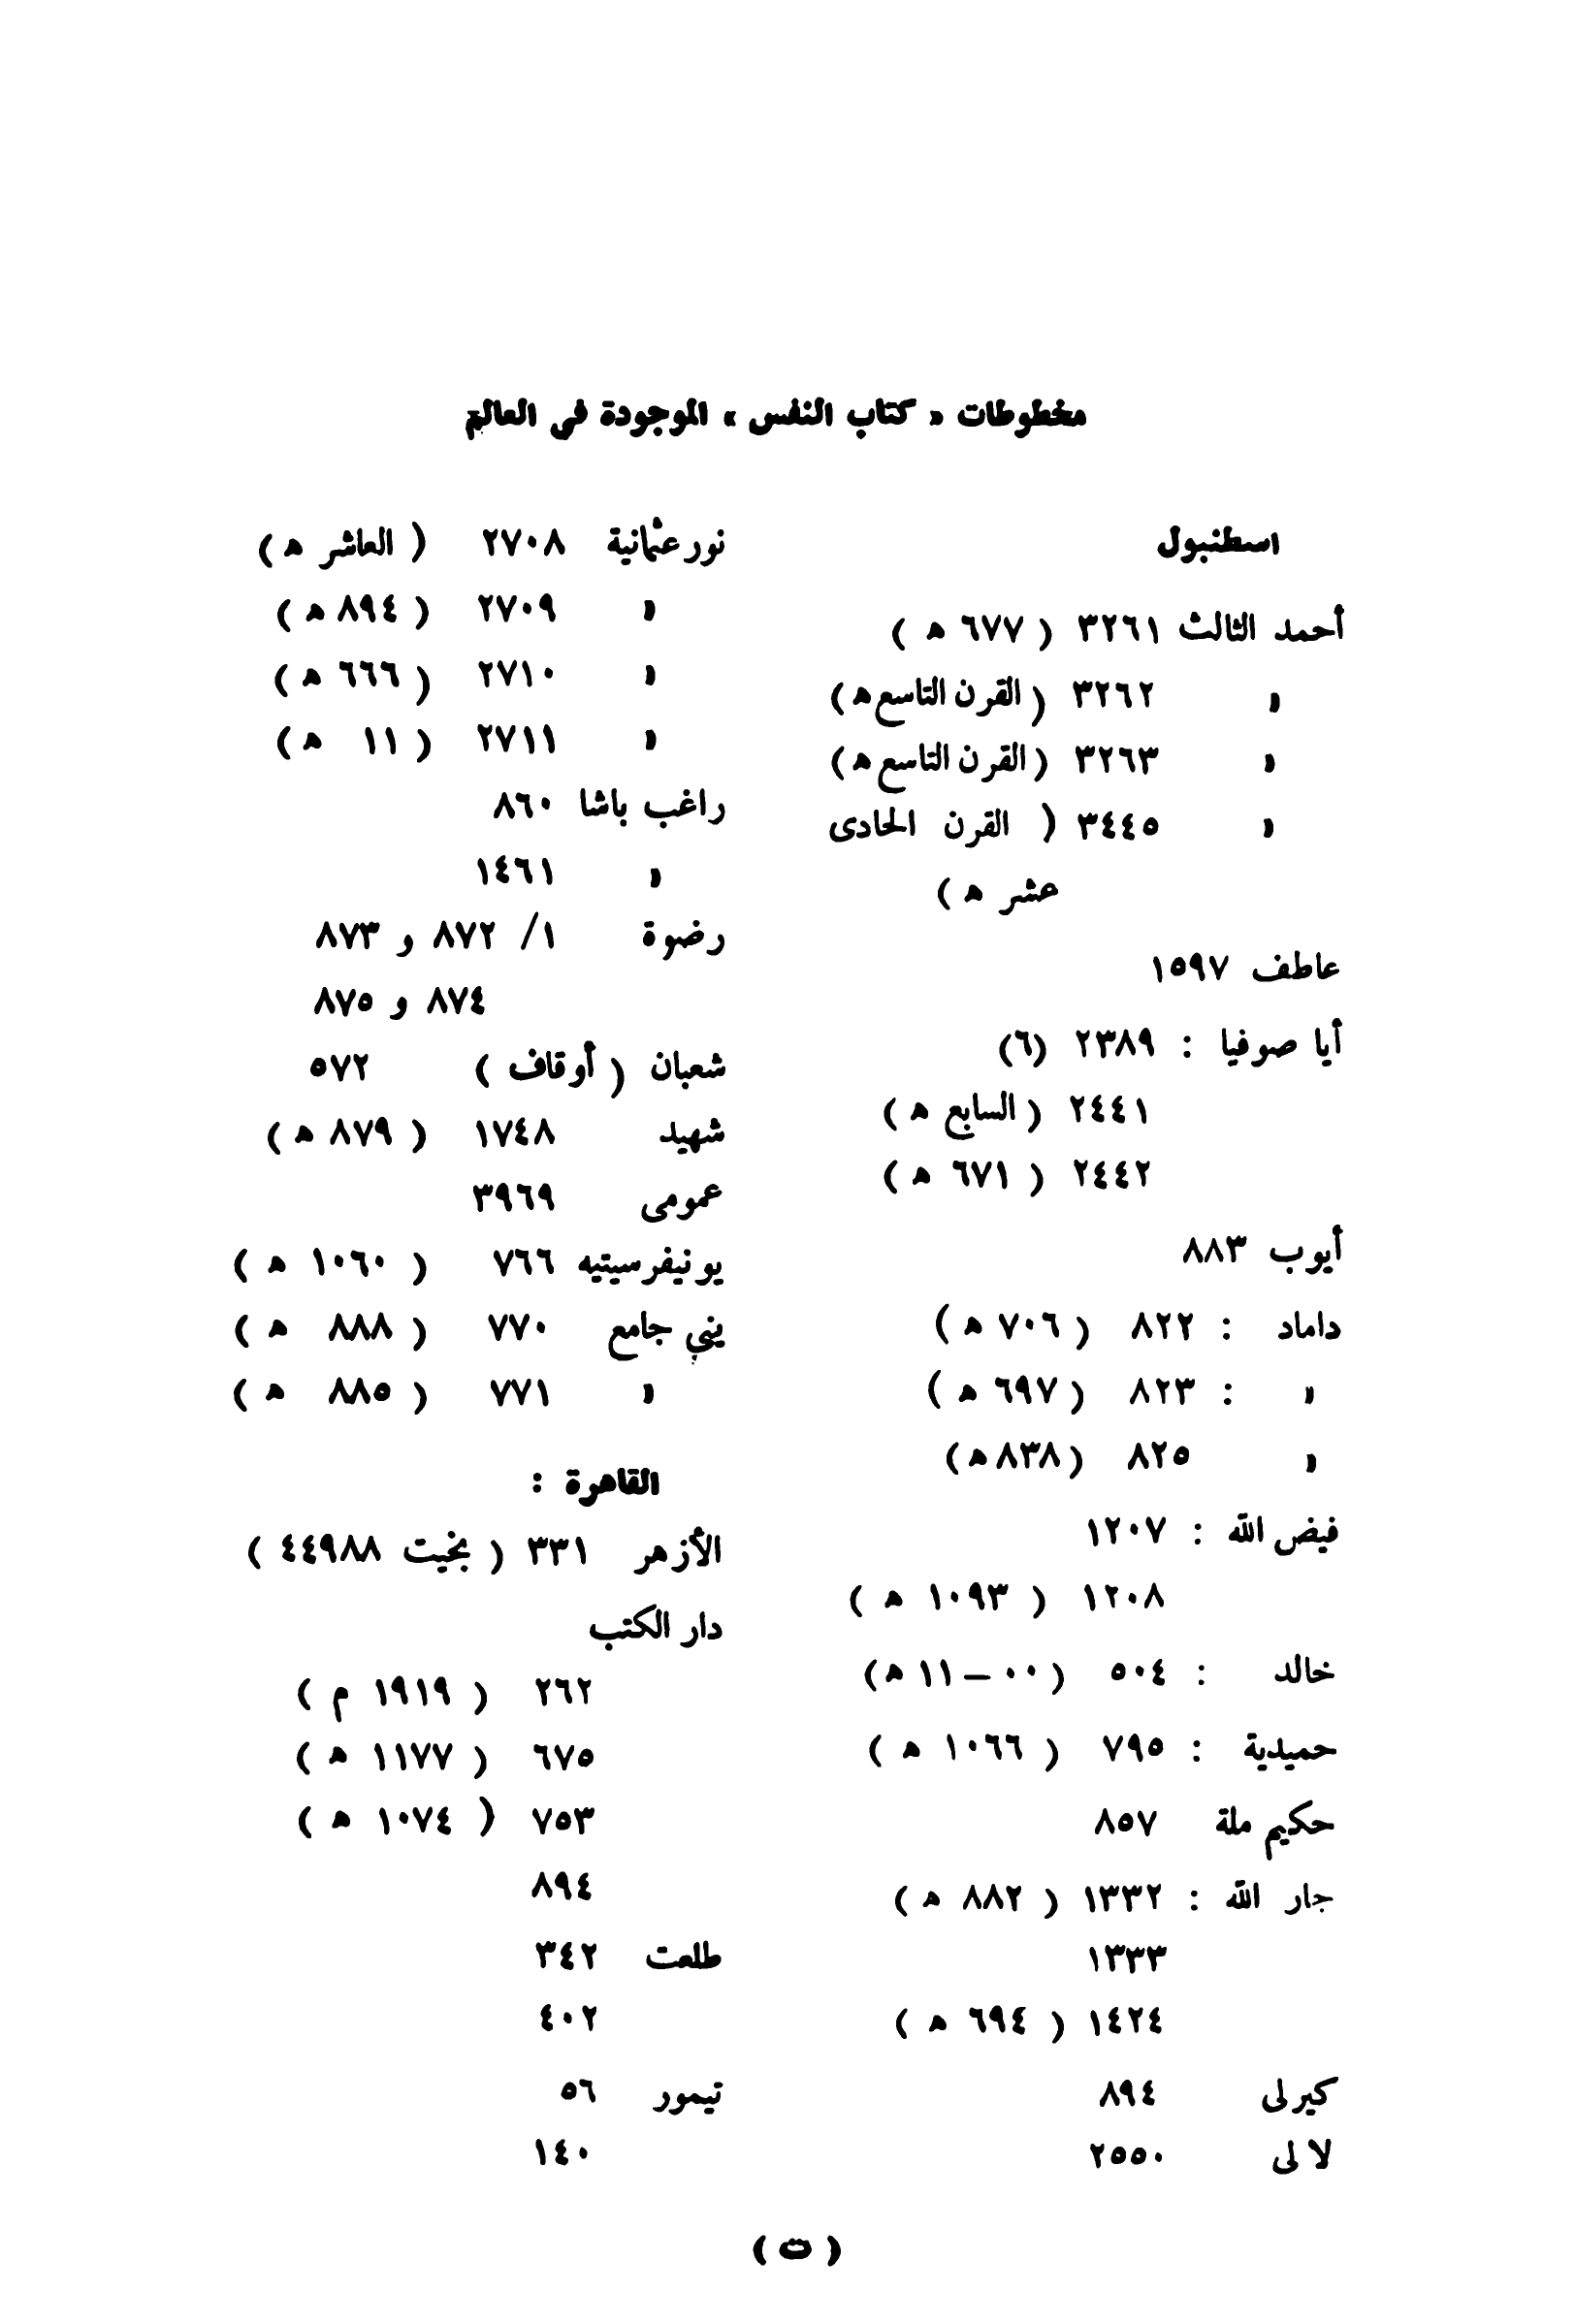 مخطوطات « كتاب النفس » الموجودة فى العالم
اسطنبول
أحمد الثالث ٣٢٦١ ( ٦٧٧ ه )
« ٣٢٦٢ ( القرن التاسع ه )
« ٣٢٦٣ ( القرن التاسع ه )
« ٣٤٤٥ ( القرن الحادى
عشر ه )
عاطف ١٥٩٧
أيا صوفيا : ٢٣٨٩ (٦)
٢٤٤١ ( السابع ه )
٢٤٤٢ ( ٦٧١ ه )
أيوب ٨٨٣
داماد : ٨٢٢ ( ٧٠٦ ه )
« : ٨٢٣ ( ٦٩٧ ه )
« ٨٢٥ ( ٨٣٨ ه )
فيض الله : ١٢٠٧
١٢٠٨ ( ١٠٩٣ ه )
خالد : ٥٠٤ ( ٠٠ – ١١ ه )
حميدية : ٧٩٥ ( ١٠٦٦ ه )
حكيم ملة ٨٥٧
جار الله : ١٣٣٢ ( ٨٨٢ ه )
١٣٣٣
١٤٢٤ ( ٦٩٤ ه )
كيرلى ٨٩٤
لالى ٢٥٥٠
نور عثمانية ٢٧٠٨ ( العاشر ه )
« ٢٧٠٩ ( ٨٩٤ ه )
« ٢٧١٠ ( ٦٦٦ ه )
« ٢٧١١ ( ١١ ه )
راغب باشا ٨٦٠
« ١٤٦١
رضوة ١/ ٨٧٢ و ٨٧٣
٨٧٤ و ٨٧٥
شعبان ( أوقاف ) ٥٧٢
شهيد ١٧٤٨ ( ٨٧٩ ه )
عمومى ٣٩٦٩
يونيفرسيتيه ٧٦٦ ( ١٠٦٠ ه )
ينى جامع ٧٧٠ ( ٨٨٨ ه )
« ٧٧١ ( ٨٨٥ ه )
القاهرة :
الأزهر ٣٣١ ( بخيت ٤٤٩٨٨ )
دار الكتب
٢٦٢ ( ١٩١٩ م )
٦٧٥ ( ١١٧٧ ه )
٧٥٣ ( ١٠٧٤ ه )
٨٩٤
طلعت ٣٤٢
٤٠٢
تيمور ٥٦
١٤٠
( ت )